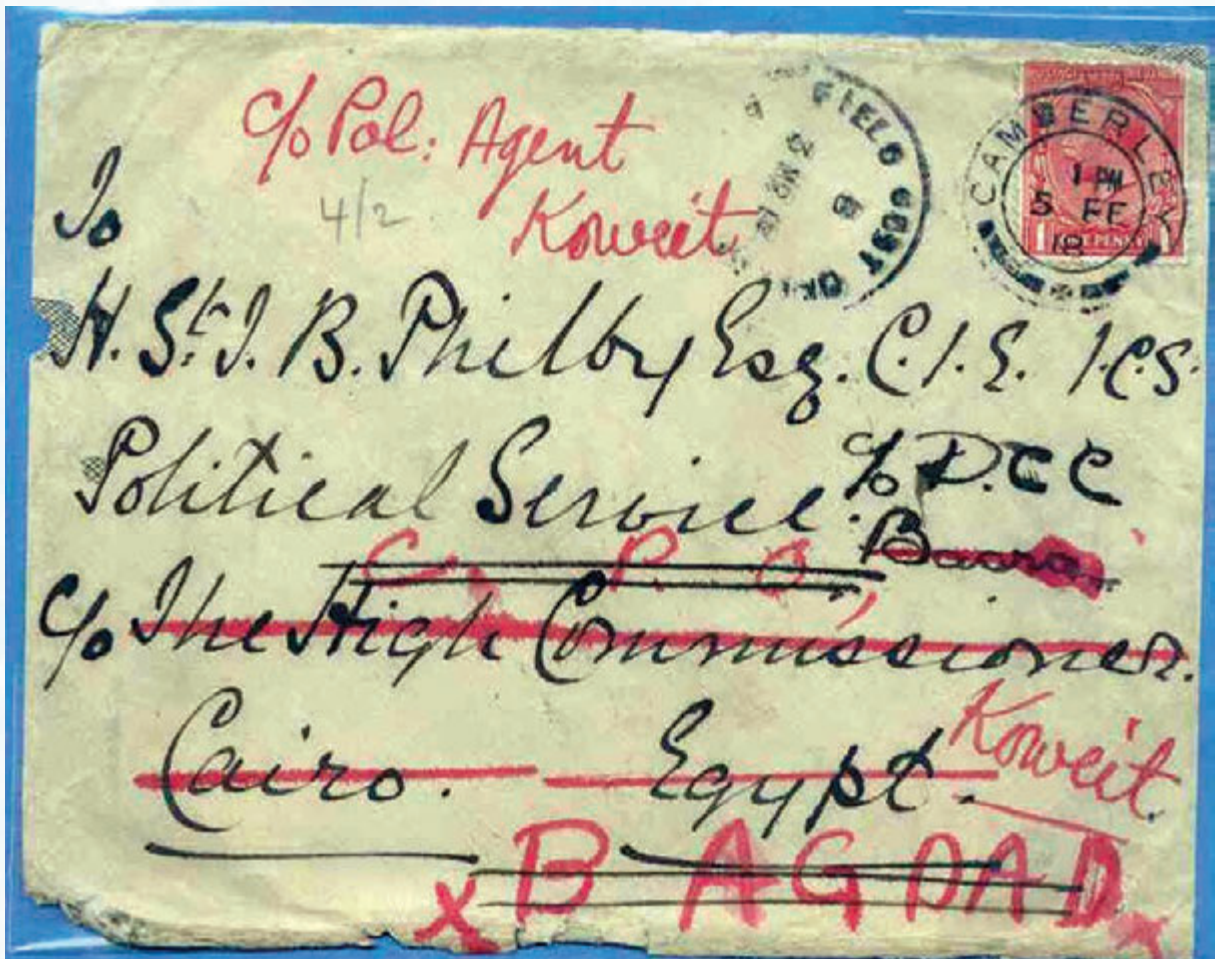 c/o Pol: Agent
Koweit
4/2
FIELD POST
CAMBERLEY
1 PM
5 FE
18
1 ONE PENNY 1
To
H. St. J. B. Philby Esq. C.I.E. I.C.S.
Political Service.
c/o D.C C
Basra
C. P. O,
c/o The High Commissioner.
Cairo. Egypt.
Koweit.
x BAGDAD x